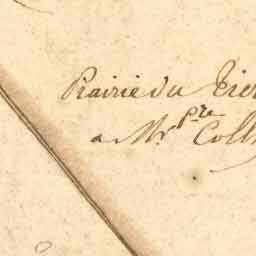 Prairie du Tier
a Mr. Pre Coll